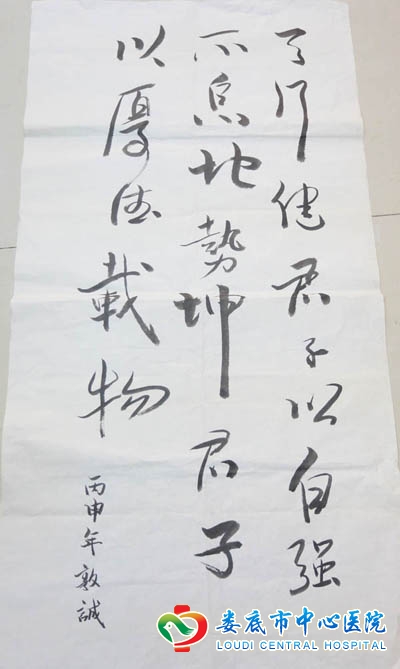 天行健君子以自强
不息地势坤君子
以厚德载物
丙申年敦誠
娄底市中心医院
LOUDI CENTRAL HOSPITAL